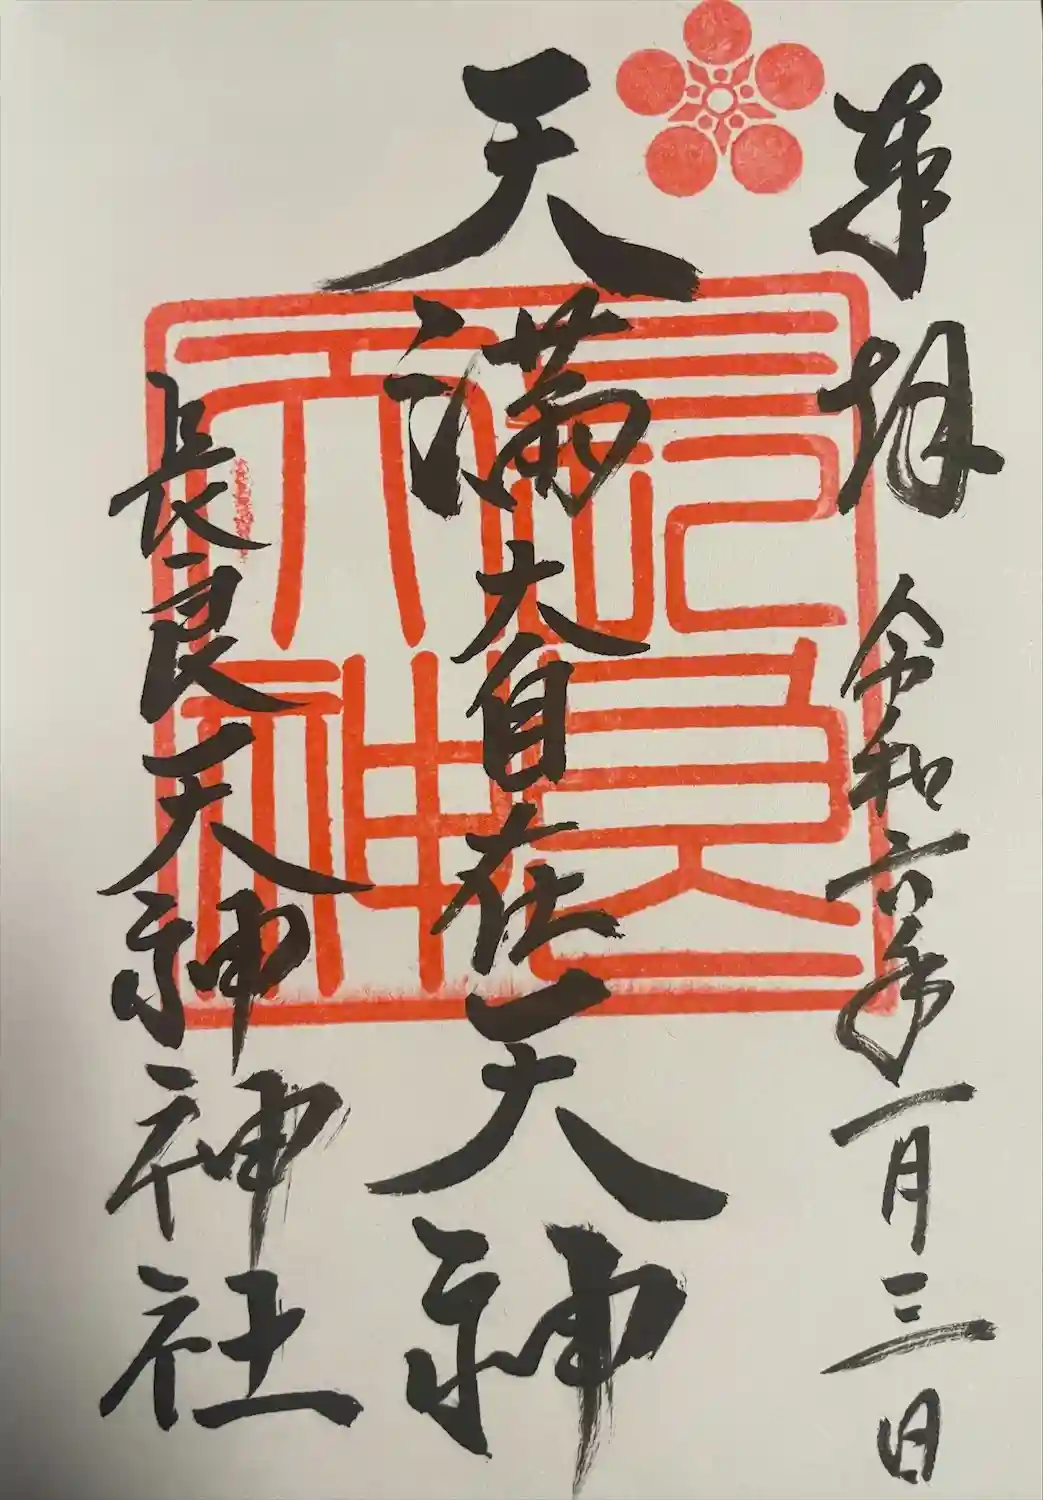 奉拝 令和六年一月三日
天満大自在天神
長良天神神社
長良天神